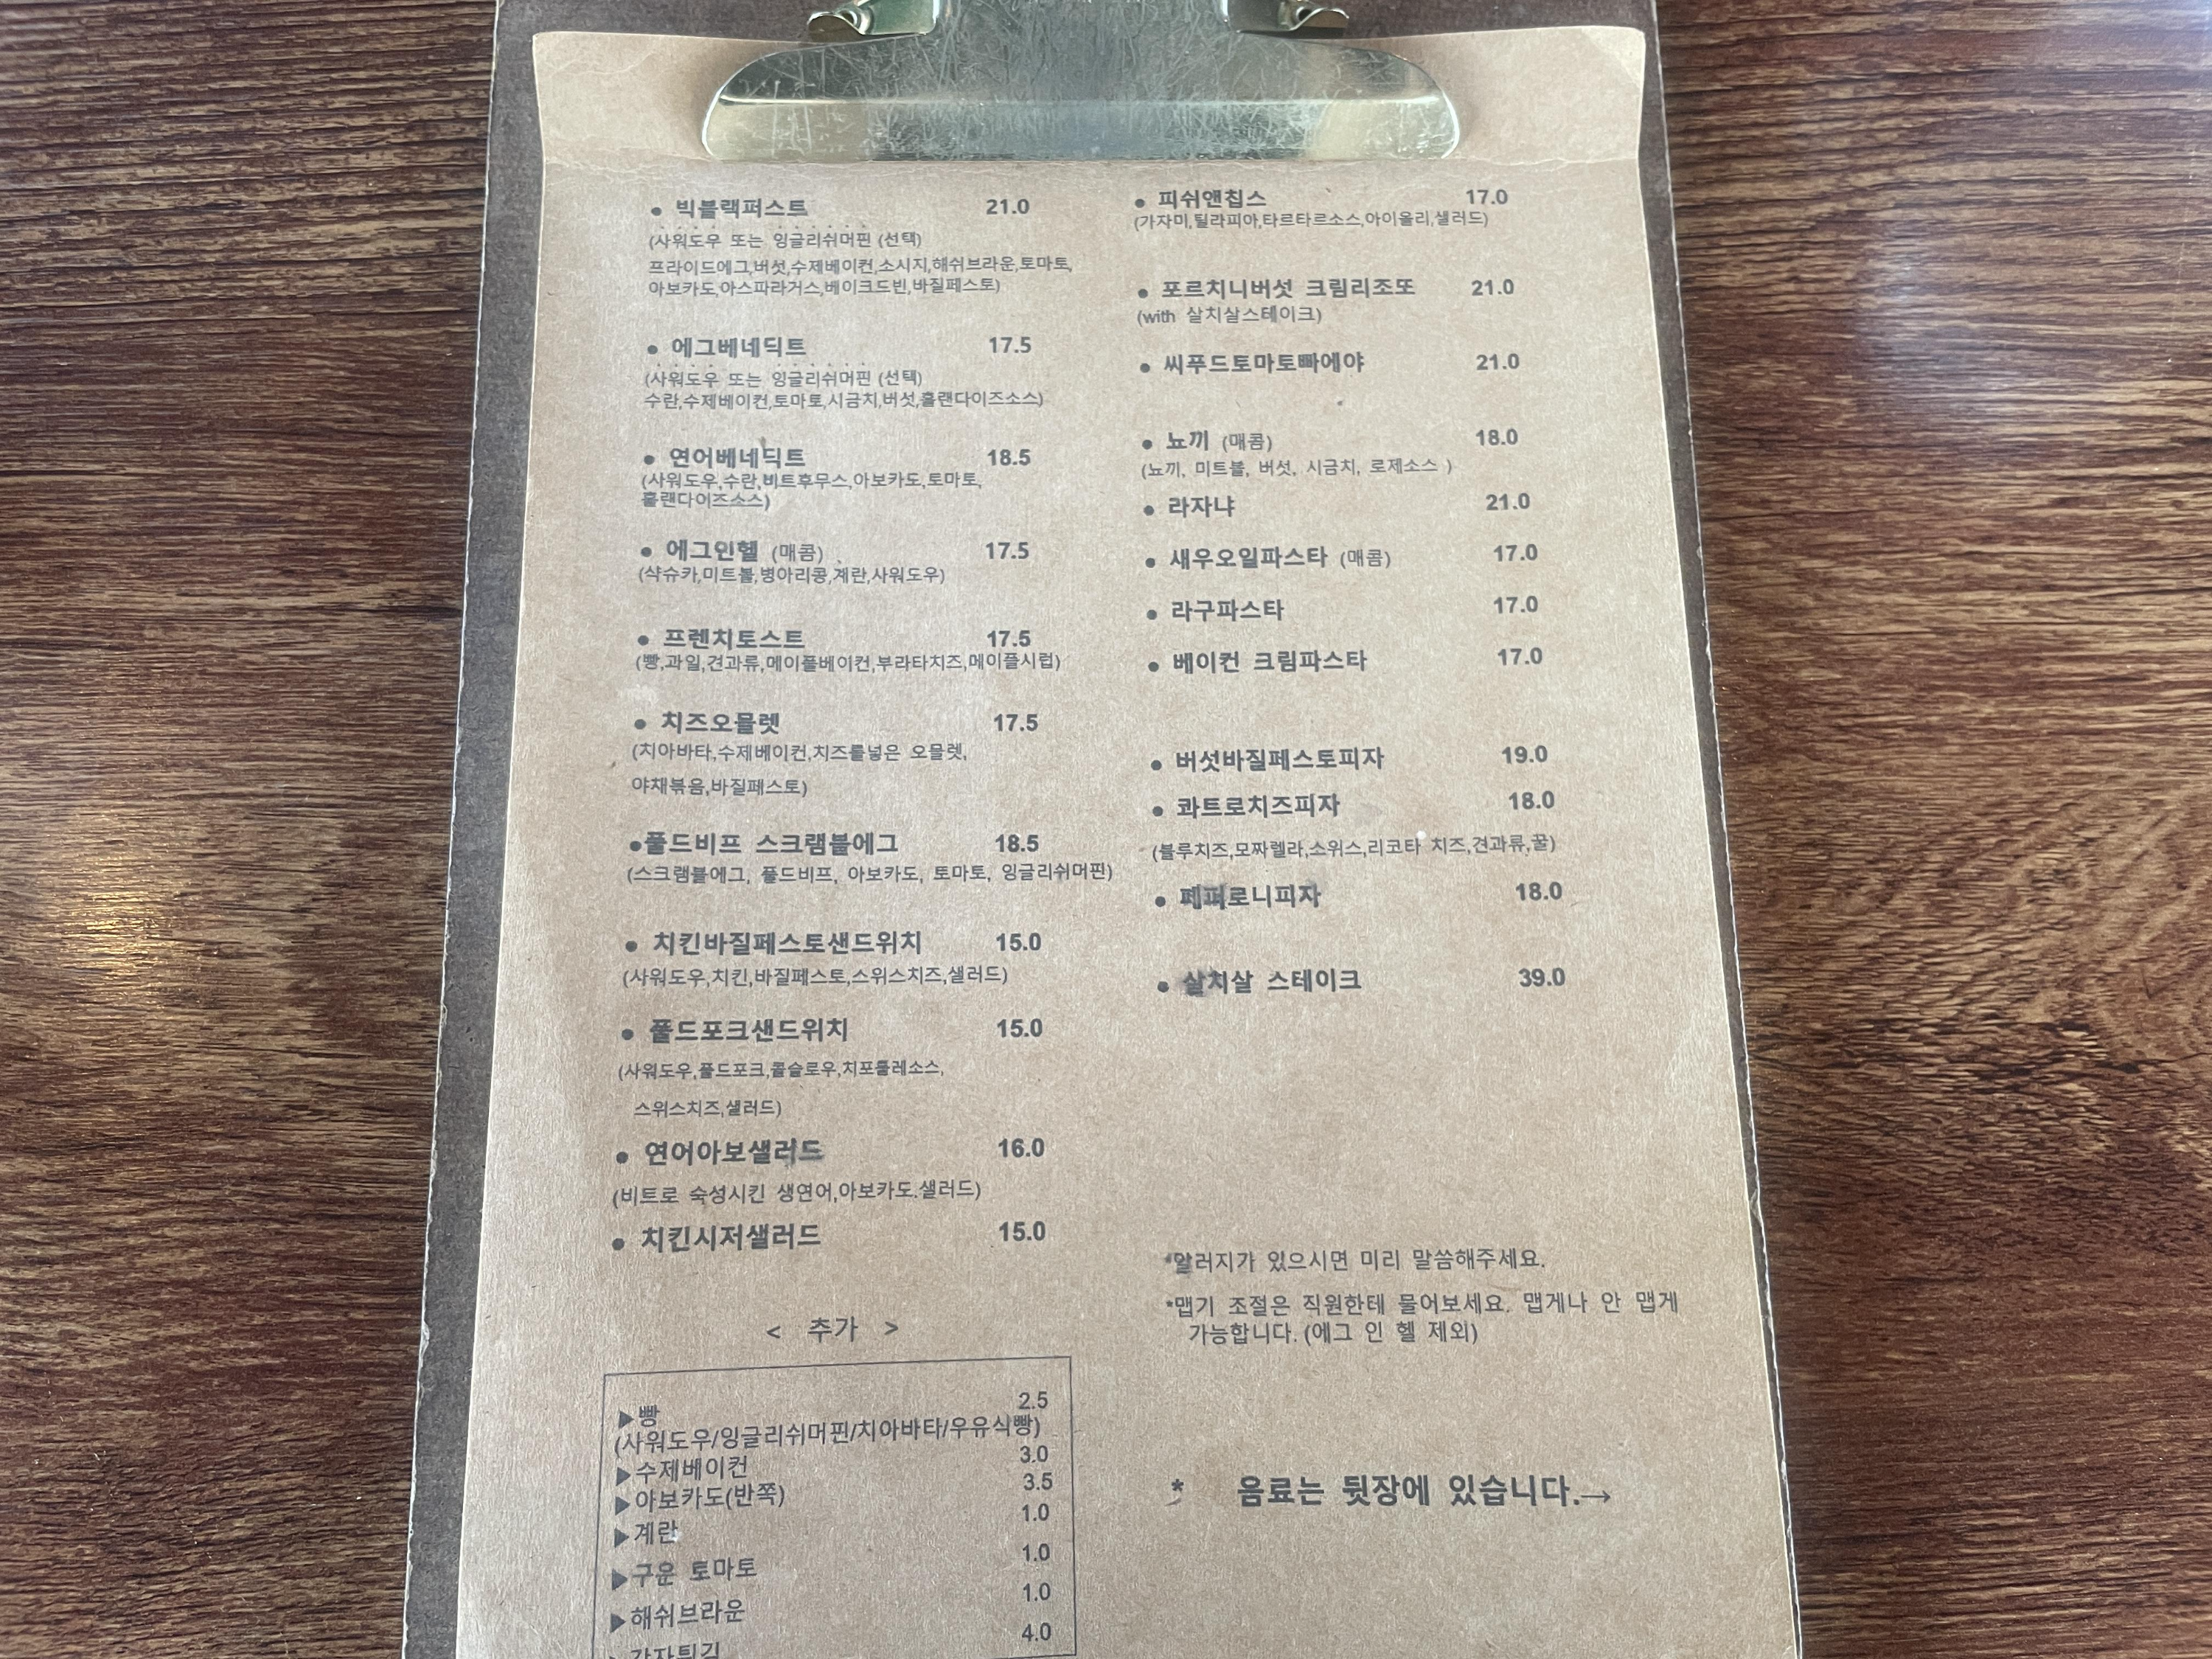 ● 빅블랙퍼스트 21.0
(사워도우 또는 잉글리쉬머핀 (선택)
프라이드에그,버섯,수제베이컨,소시지,해쉬브라운,토마토,
아보카도,아스파라거스,베이크드빈,바질페스토)
● 에그베네딕트 17.5
(사워도우 또는 잉글리쉬머핀 (선택)
수란,수제베이컨,토마토,시금치,버섯,홀랜다이즈소스)
● 연어베네딕트 18.5
(사워도우,수란,비트후무스,아보카도,토마토,
홀랜다이즈소스)
● 에그인헬 (매콤) 17.5
(샥슈카,미트볼,병아리콩,계란,사워도우)
● 프렌치토스트 17.5
(빵,과일,견과류,메이플베이컨,부라타치즈,메이플시럽)
● 치즈오믈렛 17.5
(치아바타,수제베이컨,치즈를넣은 오믈렛,
야채볶음,바질페스토)
●풀드비프 스크램블에그 18.5
(스크램블에그, 풀드비프, 아보카도, 토마토, 잉글리쉬머핀)
● 치킨바질페스토샌드위치 15.0
(사워도우,치킨,바질페스토,스위스치즈,샐러드)
● 풀드포크샌드위치 15.0
(사워도우,풀드포크,콜슬로우,치포틀레소스,
스위스치즈,샐러드)
● 연어아보샐러드 16.0
(비트로 숙성시킨 생연어,아보카도.샐러드)
● 치킨시저샐러드 15.0
< 추가 >
▶빵 2.5
(사워도우/잉글리쉬머핀/치아바타/우유식빵)
▶수제베이컨 3.0
▶아보카도(반쪽) 3.5
▶계란 1.0
▶구운 토마토 1.0
▶해쉬브라운 1.0
감자튀김 4.0
● 피쉬앤칩스 17.0
(가자미,틸라피아,타르타르소스,아이올리,샐러드)
● 포르치니버섯 크림리조또 21.0
(with 살치살스테이크)
● 씨푸드토마토빠에야 21.0
● 뇨끼 (매콤) 18.0
(뇨끼, 미트볼, 버섯, 시금치, 로제소스 )
● 라자냐 21.0
● 새우오일파스타 (매콤) 17.0
● 라구파스타 17.0
● 베이컨 크림파스타 17.0
● 버섯바질페스토피자 19.0
● 콰트로치즈피자 18.0
(블루치즈,모짜렐라,스위스,리코타 치즈,견과류,꿀)
● 페퍼로니피자 18.0
● 살치살 스테이크 39.0
*알러지가 있으시면 미리 말씀해주세요.
*맵기 조절은 직원한테 물어보세요. 맵게나 안 맵게
가능합니다. (에그 인 헬 제외)
* 음료는 뒷장에 있습니다.→